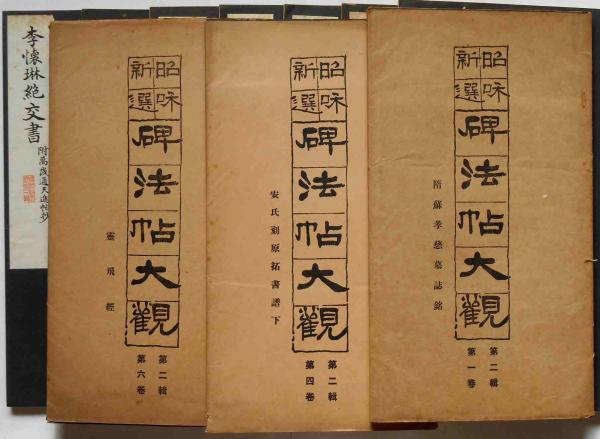 昭和
新選
碑法帖大觀
隋蘇孝慈墓誌銘
第二輯
第一卷
昭和
新選
碑法帖大觀
安氏刻原拓書譜下
第二輯
第四卷
昭和
新選
碑法帖大觀
靈飛經
第二輯
第六卷
李懷琳絶交書
附萬歲通天進帖抄